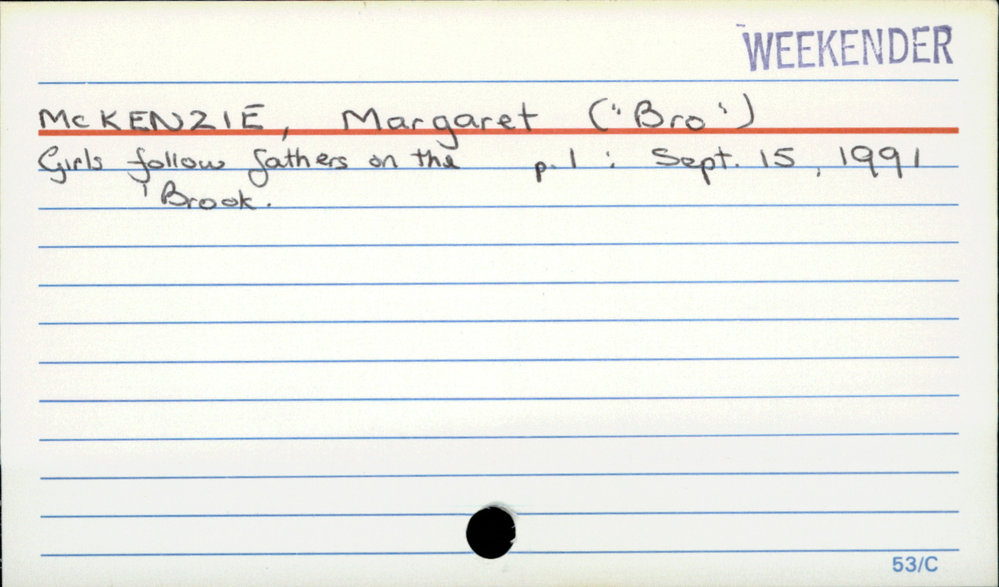 WEEKENDER
McKENZIE, Margaret ("Bro")
Girls follow fathers on the p. 1 : Sept. 15, 1991
Brook.
53/C